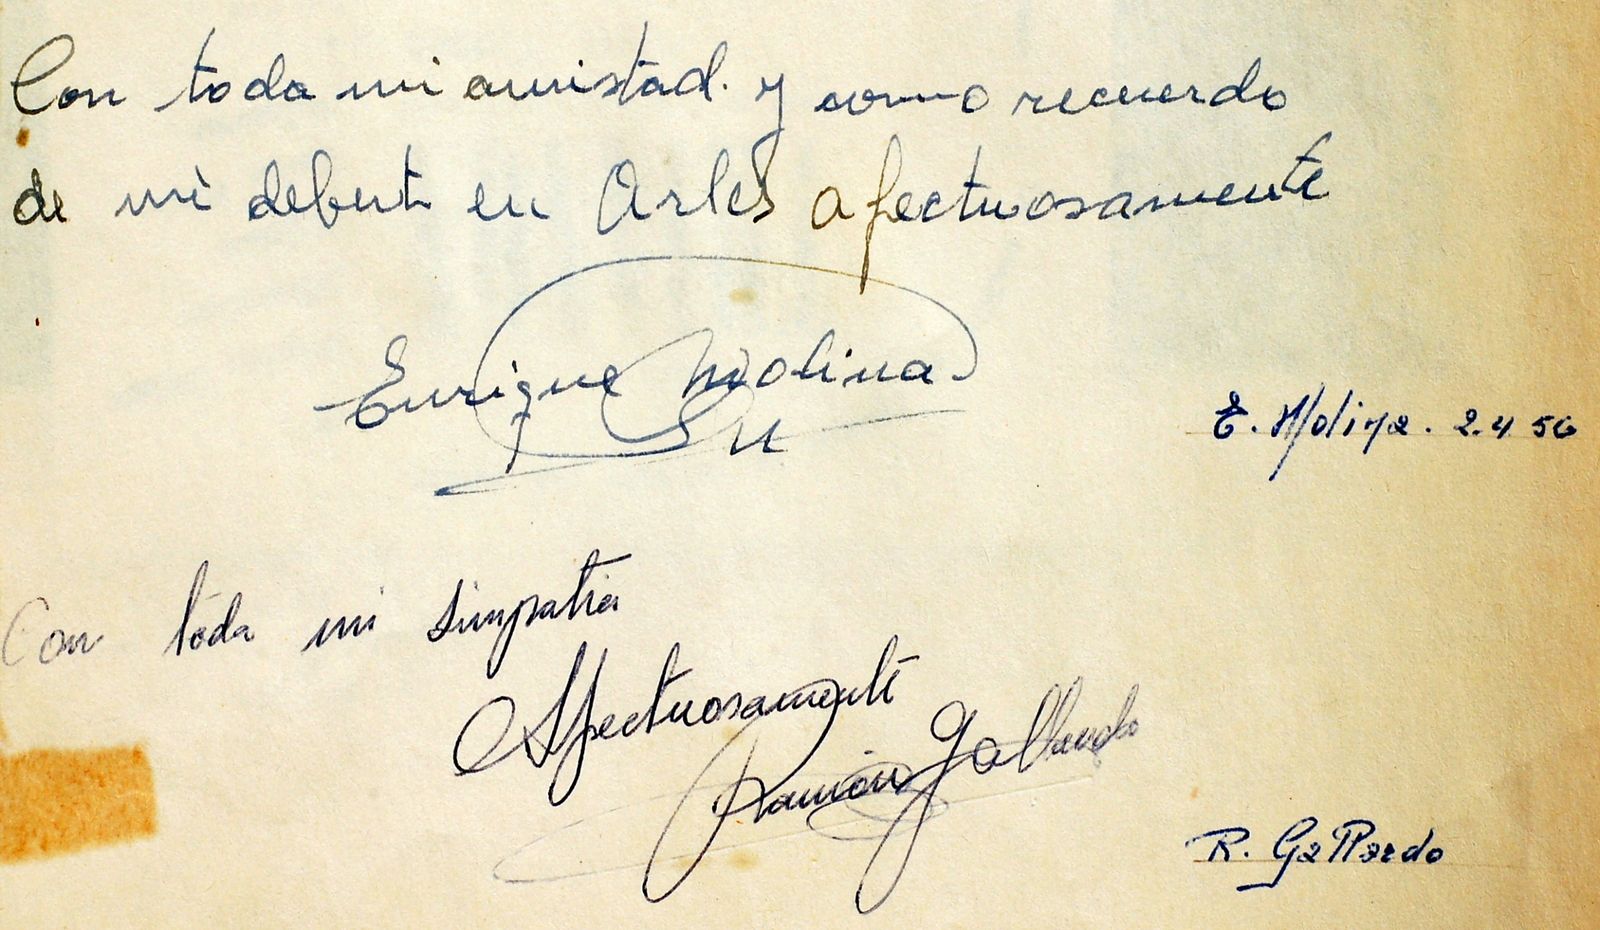 Con toda mi amistad. y como recuerdo
de mi debut en Arles afectuosamente
Enrique Molina
E. Molina. 2.4.56
Con toda mi simpatia
Afectuosamente
Ramón Gallardo
R. Gallardo